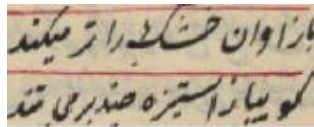 باز او ان خشک را تر میکند
کوییا ز استیزه ضد بر می تند